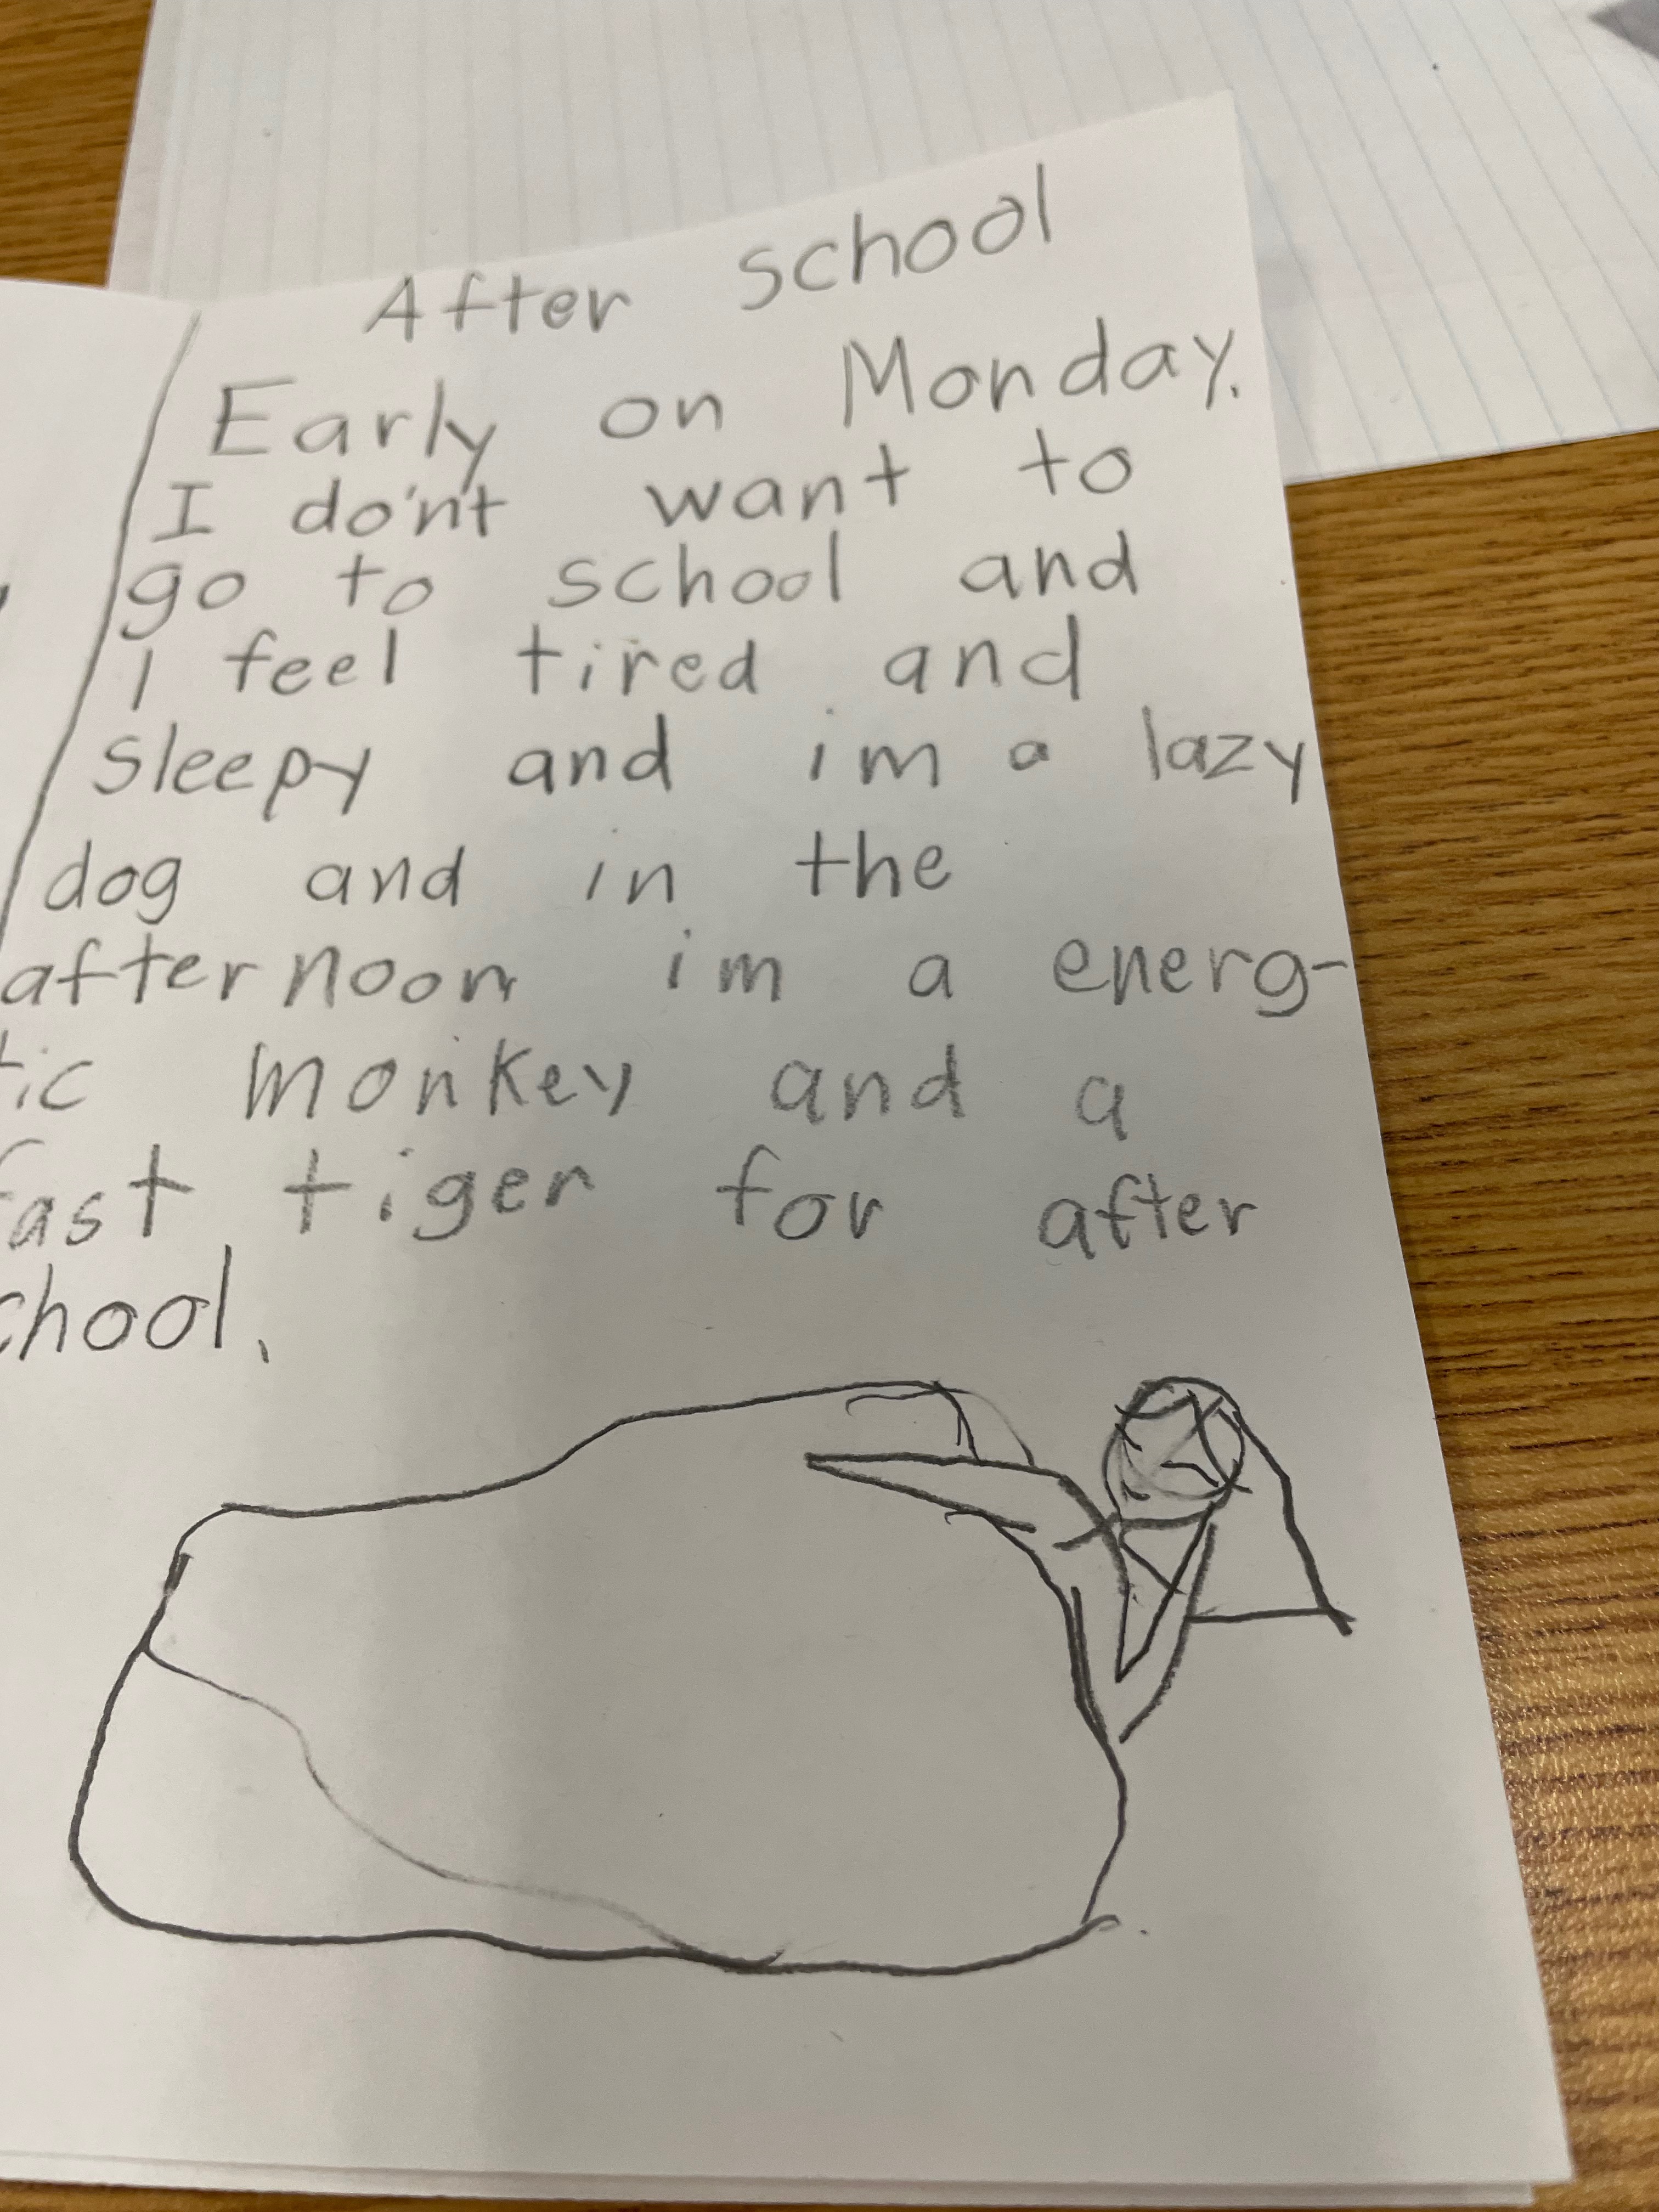 After school
Early on Monday.
I do'nt want to
go to school and
I feel tired and
sleepy and im a lazy
dog and in the
afternoon im a energ-
tic monkey and a
fast tiger for after
chool.